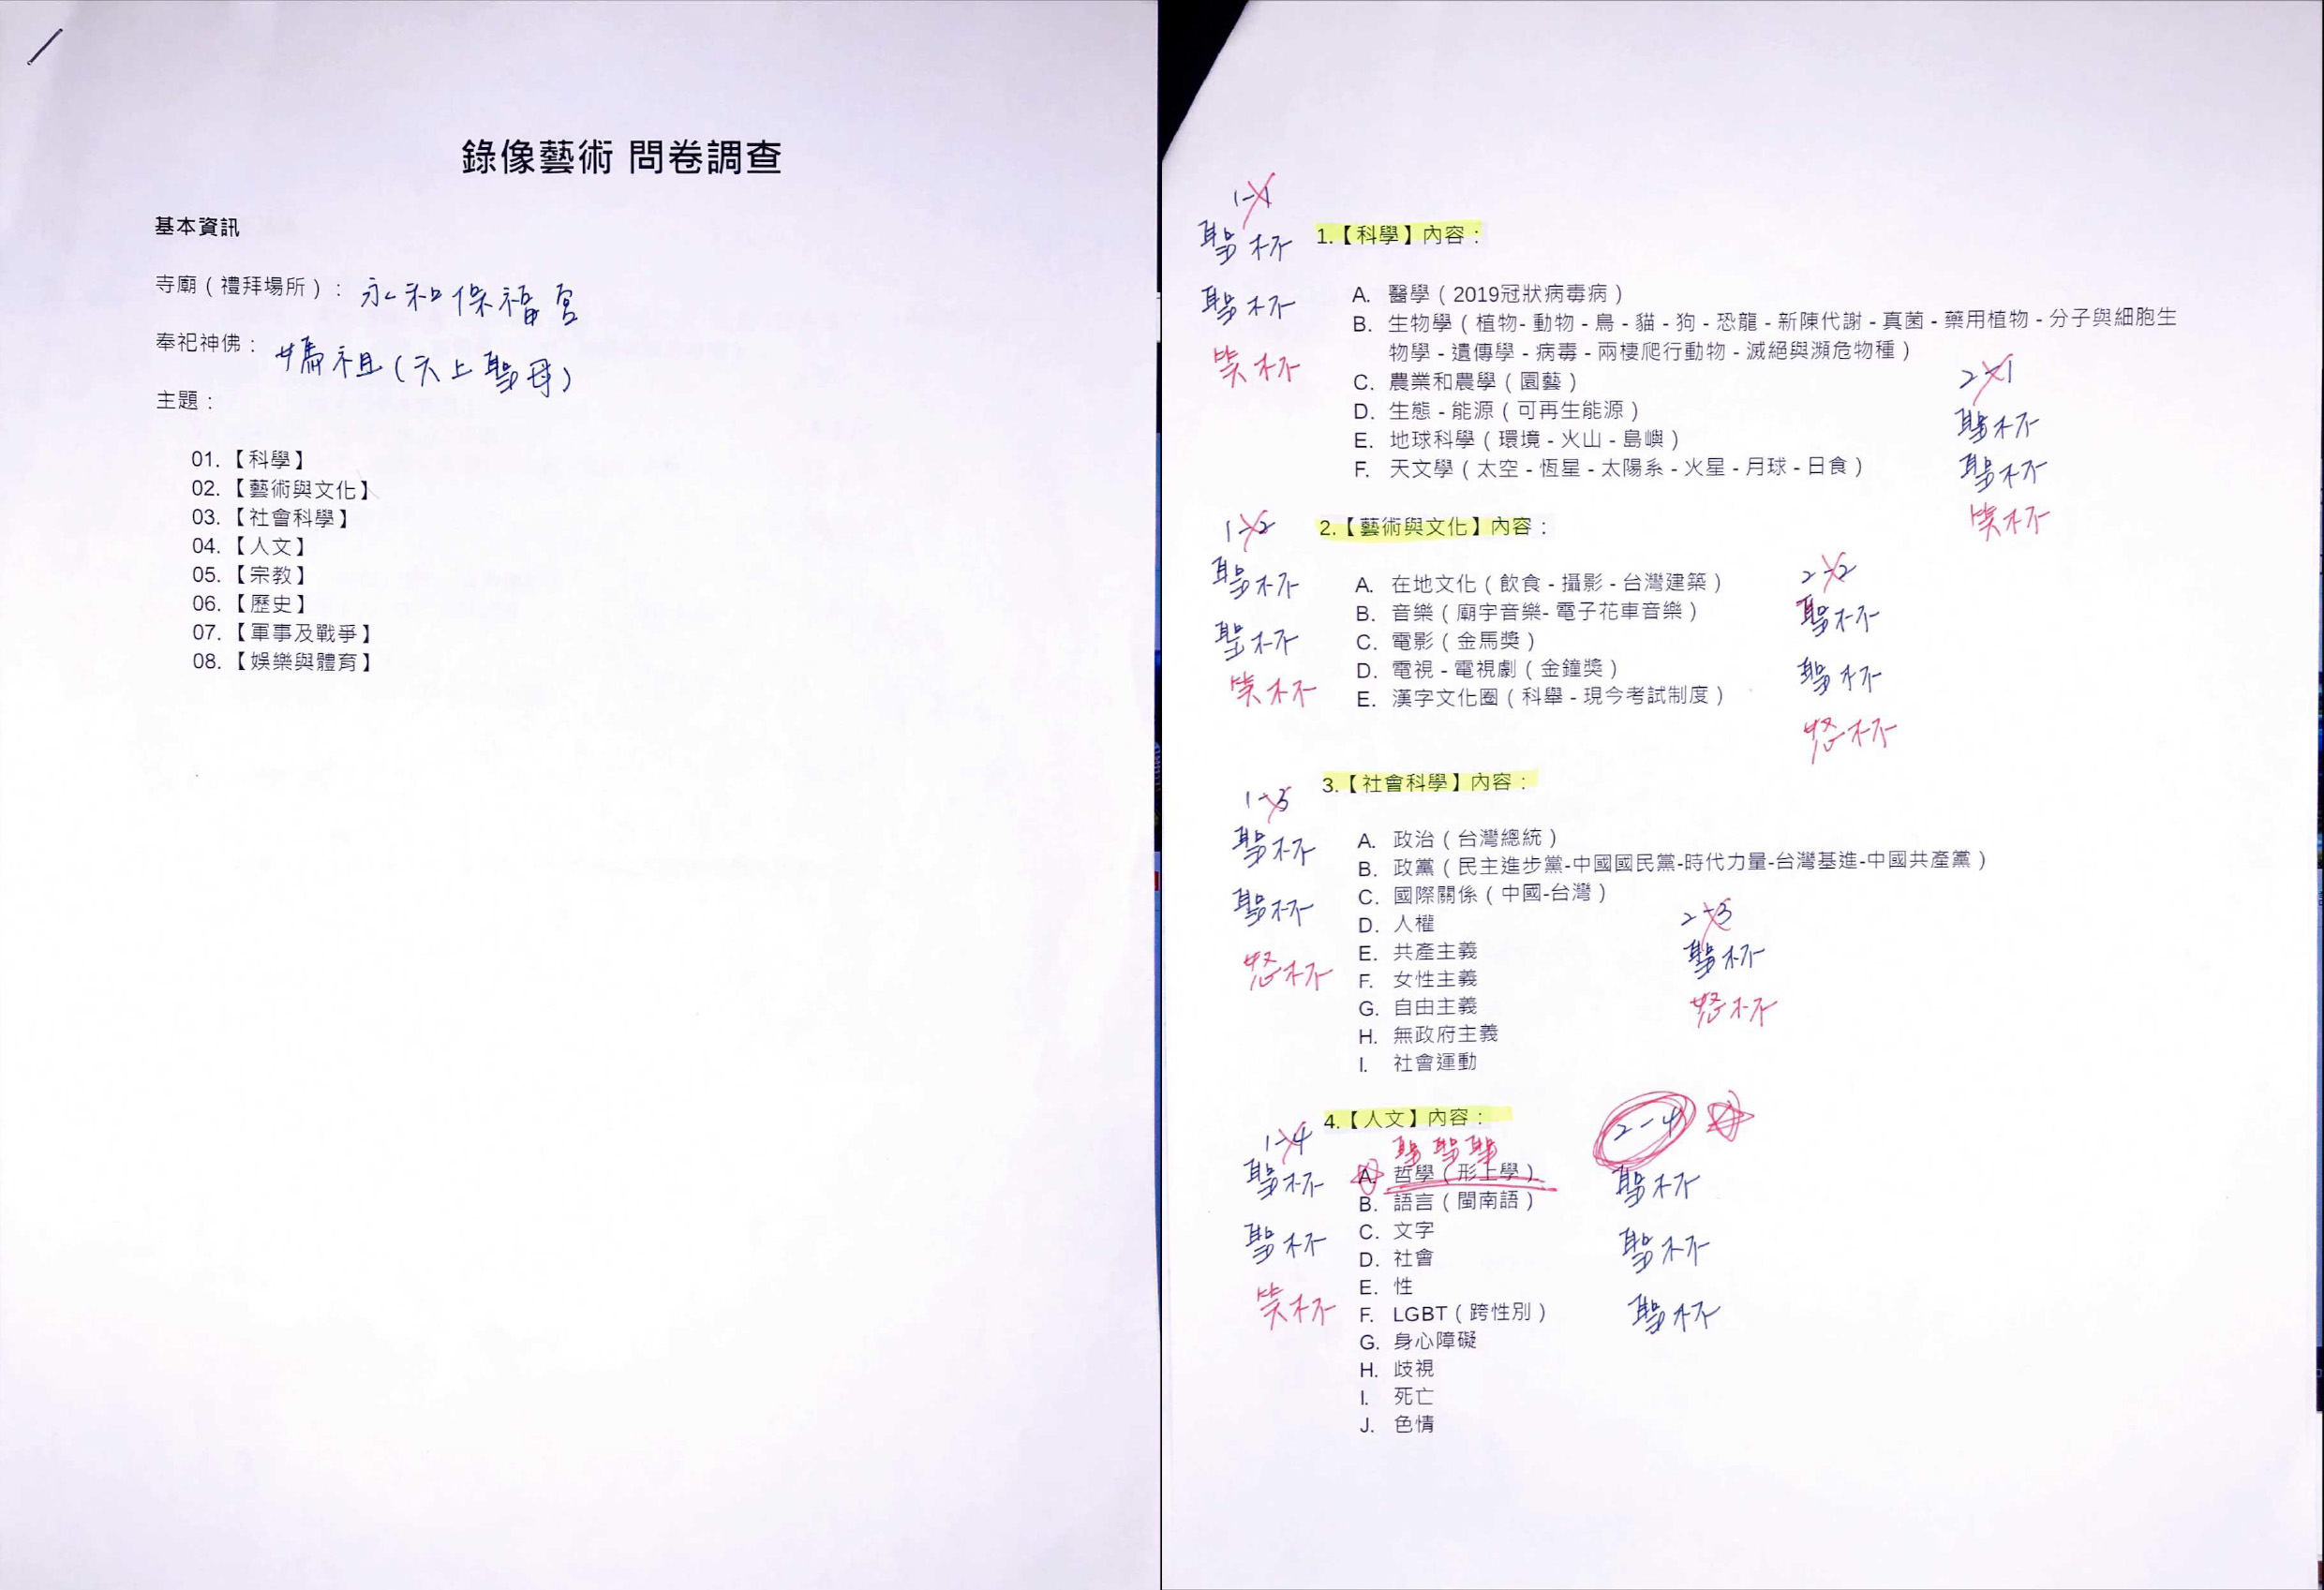 錄像藝術 問卷調查
基本資訊
寺廟（禮拜場所）： 永和保福宮
奉祀神佛： 媽祖(天上聖母)
主題：
01.【科學】
02.【藝術與文化】
03.【社會科學】
04.【人文】
05.【宗教】
06.【歷史】
07.【軍事及戰爭】
08.【娛樂與體育】
1-1
聖杯
聖杯
笑杯
1.【科學】內容：
A. 醫學（2019冠狀病毒病）
B. 生物學（植物- 動物 - 鳥 - 貓 - 狗 - 恐龍 - 新陳代謝 - 真菌 - 藥用植物 - 分子與細胞生
物學 - 遺傳學 - 病毒 - 兩棲爬行動物 - 滅絕與瀕危物種）
C. 農業和農學（園藝）
D. 生態 - 能源（可再生能源）
E. 地球科學（環境 - 火山 - 島嶼）
F. 天文學（太空 - 恆星 - 太陽系 - 火星 - 月球 - 日食）
2-1
聖杯
聖杯
笑杯
1-2
聖杯
聖杯
笑杯
2.【藝術與文化】內容：
A. 在地文化（飲食 - 攝影 - 台灣建築）
B. 音樂（廟宇音樂- 電子花車音樂）
C. 電影（金馬獎）
D. 電視 - 電視劇（金鐘獎）
E. 漢字文化圈（科舉 - 現今考試制度）
2-2
聖杯
聖杯
怒杯
1-3
聖杯
聖杯
怒杯
3.【社會科學】內容：
A. 政治（台灣總統）
B. 政黨（民主進步黨-中國國民黨-時代力量-台灣基進-中國共產黨）
C. 國際關係（中國-台灣）
D. 人權
E. 共產主義
F. 女性主義
G. 自由主義
H. 無政府主義
I. 社會運動
2-3
聖杯
怒杯
1-4
聖杯
聖杯
笑杯
4.【人文】內容：
聖 聖 聖
A. 哲學（形上學）
B. 語言（閩南語）
C. 文字
D. 社會
E. 性
F. LGBT（跨性別）
G. 身心障礙
H. 歧視
I. 死亡
J. 色情
2-4
聖杯
聖杯
聖杯